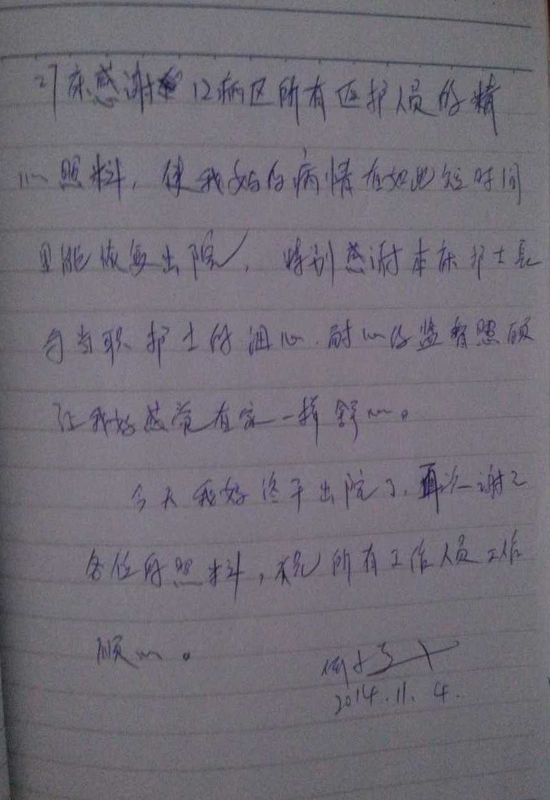 27床感谢12病区所有医护人员的精
心照料，使我妈的病情在如此短时间
里能恢复出院，特别感谢本床护士长
与当职护士的细心、耐心的监督照顾
让我妈感觉在家一样舒心。
今天我妈终于出院了，再次谢谢
各位的照料，祝所有工作人员工作
顺心。
2014.11.4.